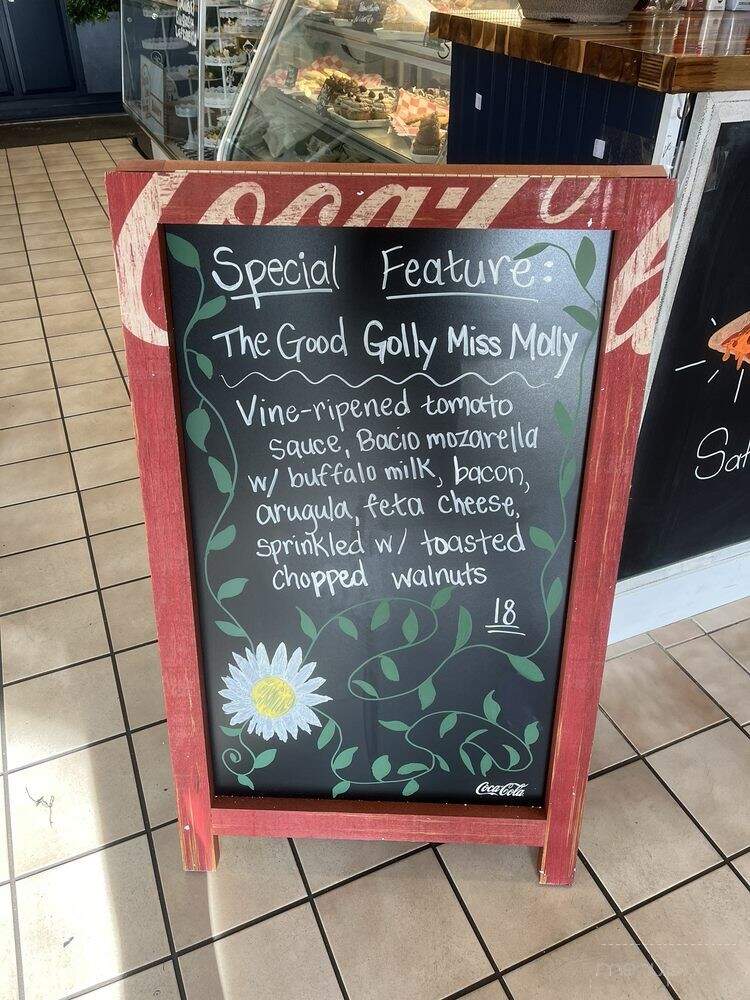 Coca-Cola
Special Feature:
The Good Golly Miss Molly
Vine-ripened tomato
sauce, Bacio mozarella
w/ buffalo milk, bacon,
arugula, feta cheese,
sprinkled w/ toasted
chopped walnuts
18
Coca-Cola
Sat